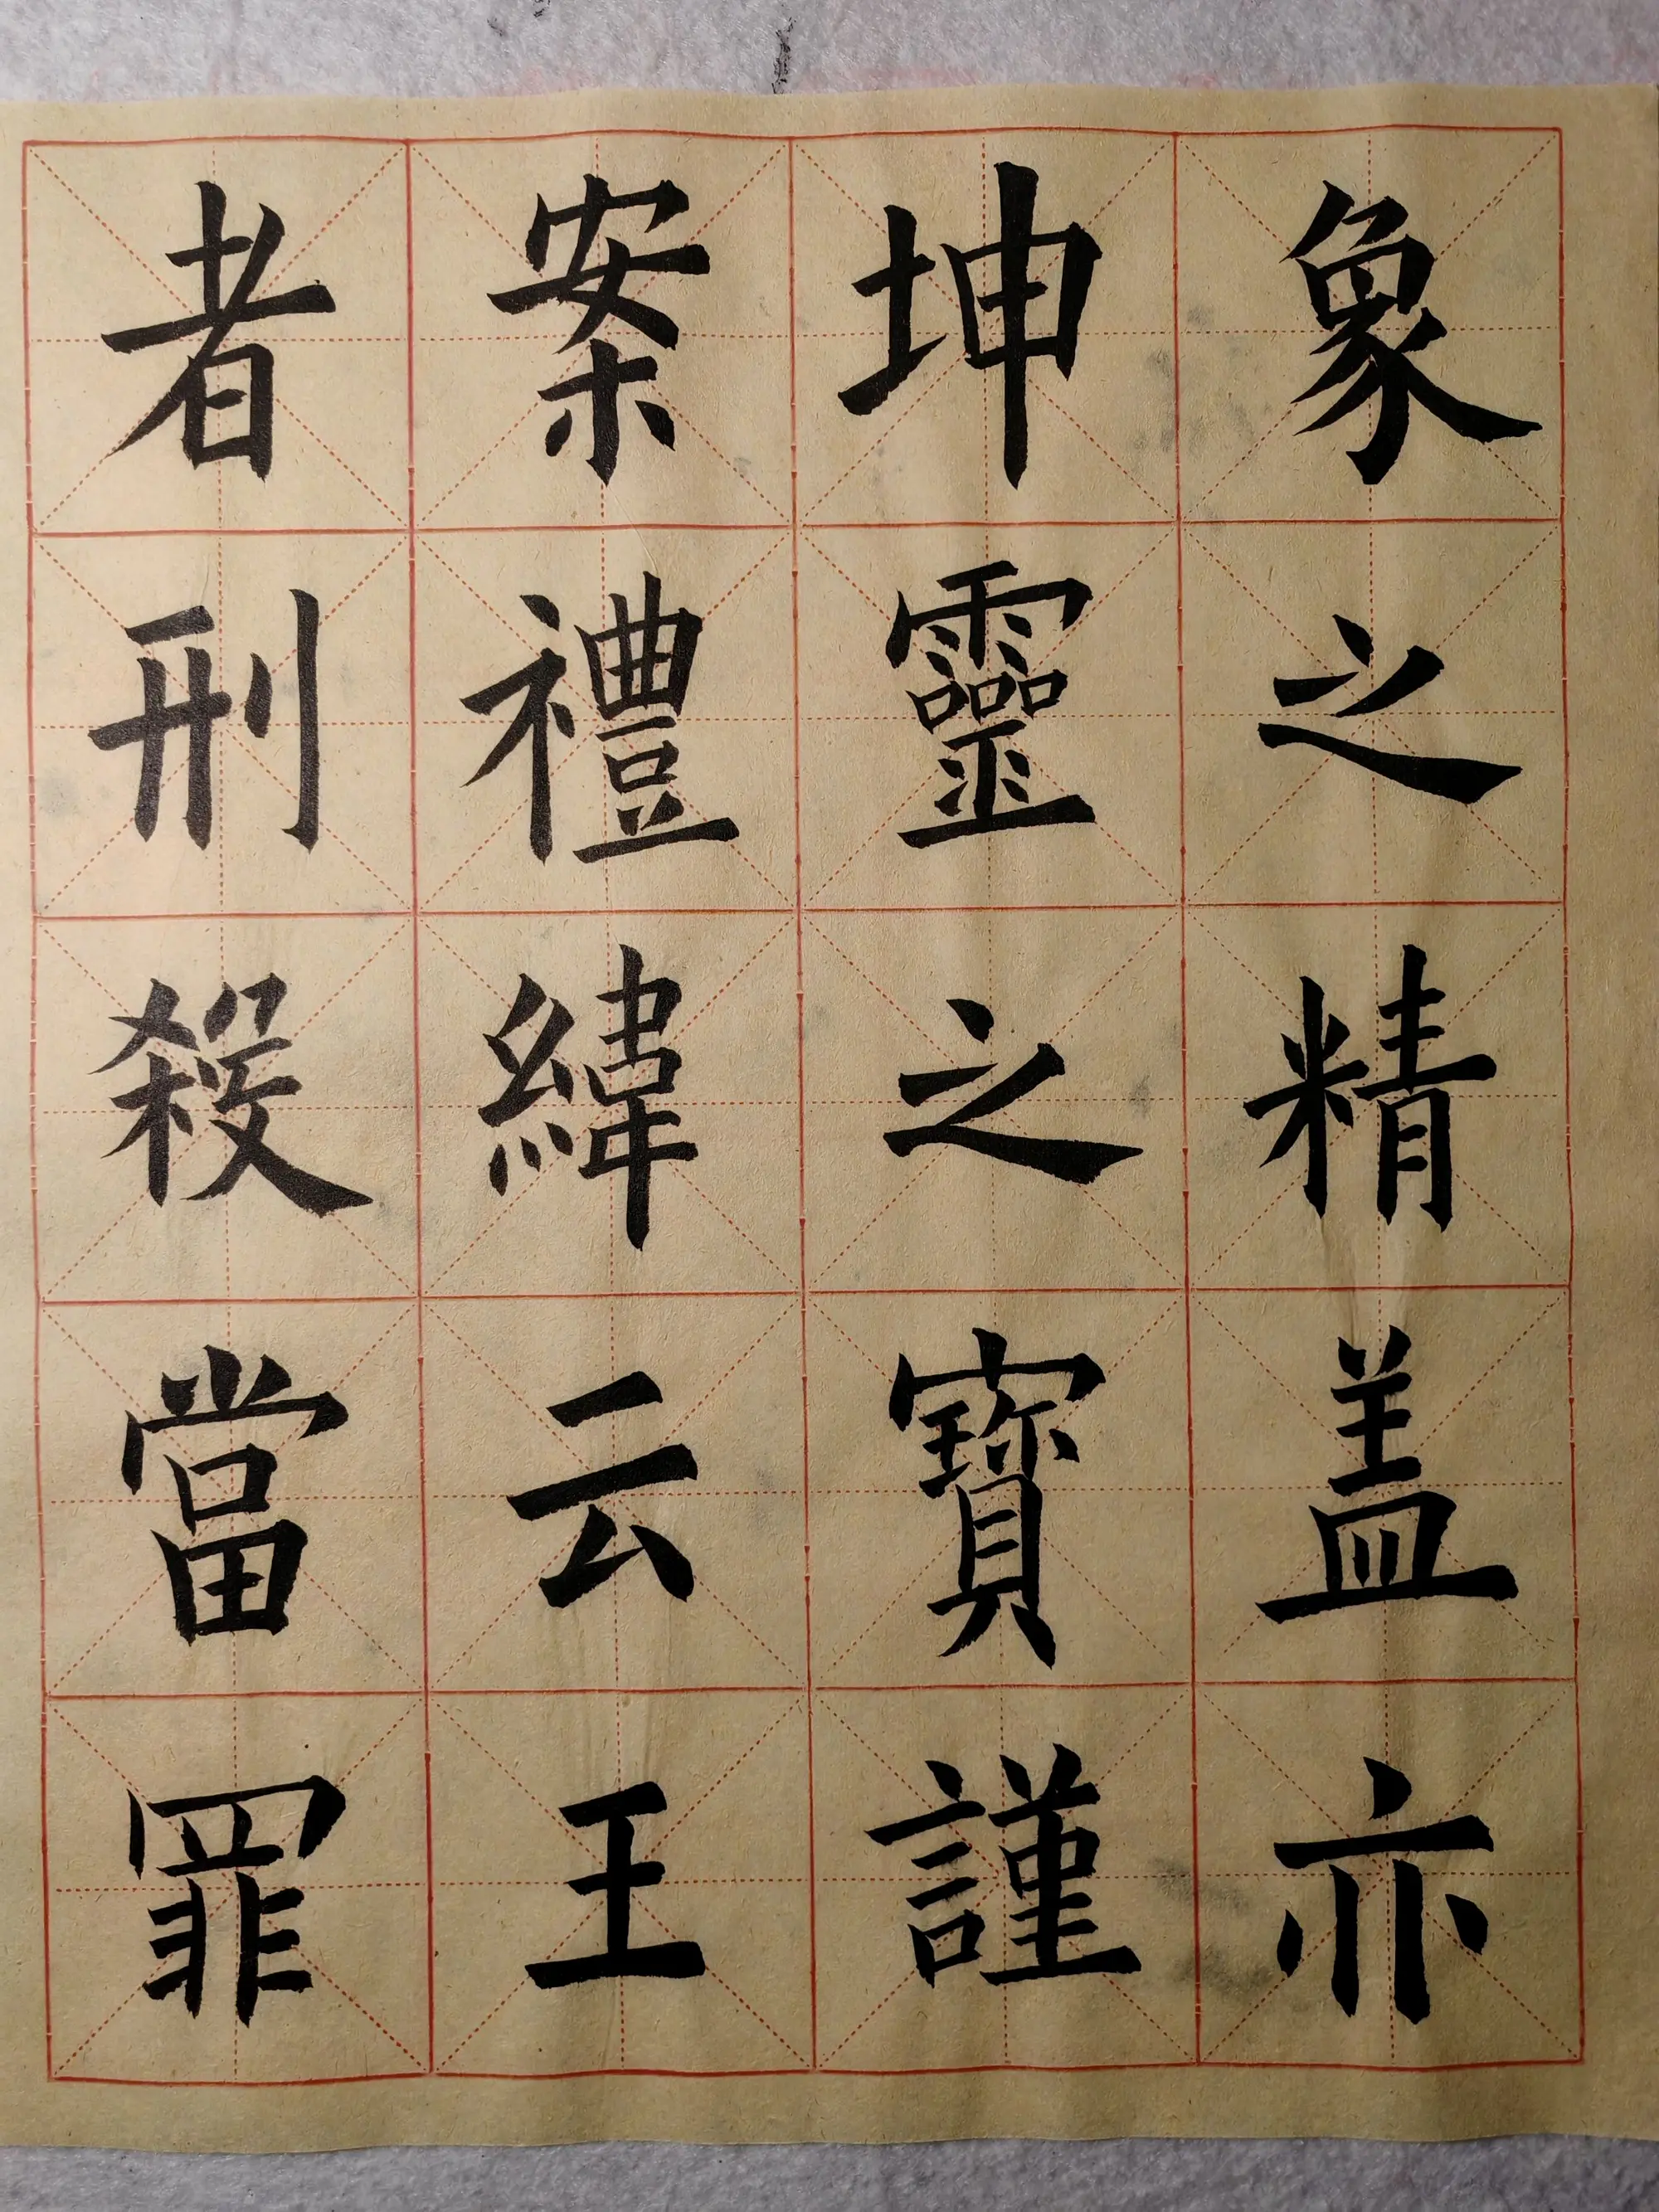 象之精盖亦
坤靈之寶謹
案禮緯云王
者刑殺當罪